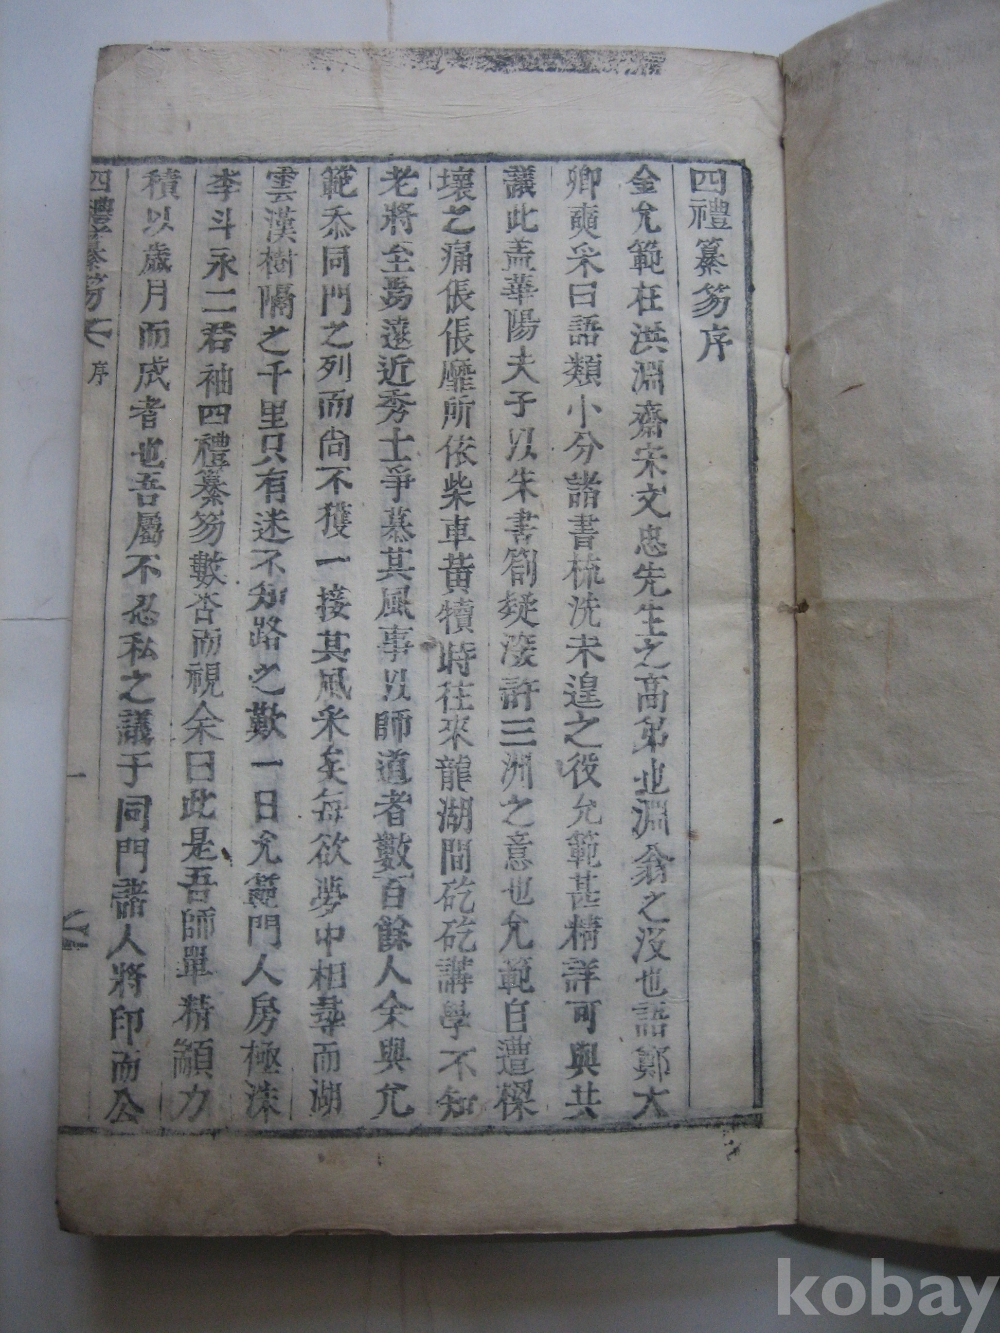 四禮纂笏序
金允範在洪淵齋宋文忠先生之高弟也淵翁之沒也語鄭大
卿奭采曰語類小分諸書梳洗未遑之役允範甚精詳可與共
議此盖華陽夫子以朱書箚疑深許三洲之意也允範自遭樑
壞之痛倀倀靡所依柴車黃犢時往來龍湖間矻矻講學不知
老將至焉遠近秀士爭慕其風事以師道者數百餘人余與允
範忝同門之列而尙不獲一接其風采矣每欲夢中相尋而湖
雲漢樹隔之千里只有迷不知路之歎一日允範門人房極洙
李斗永二君袖四禮纂笏數呇而視余曰此是吾師單精竭力
積以歲月而成者也吾屬不忍私之議于同門諸人將印而公
四禮纂笏
序
一
kobay